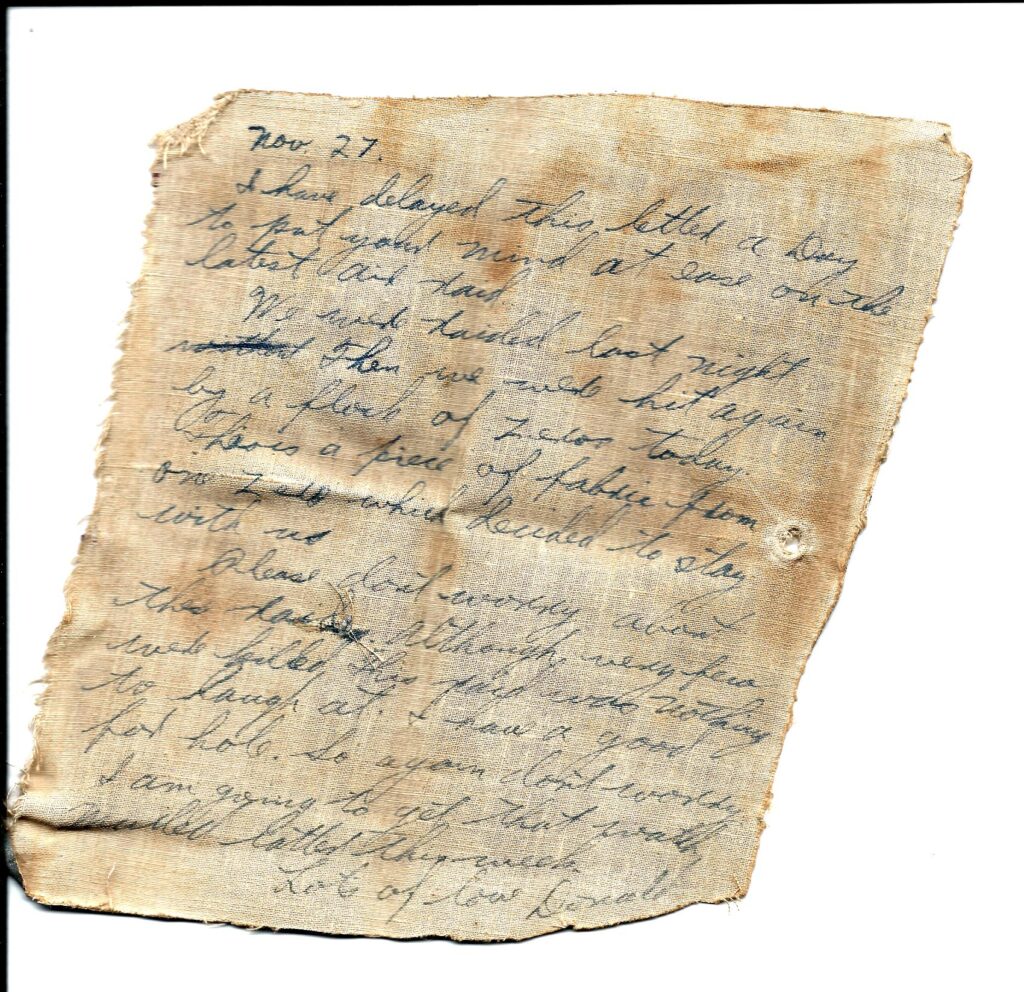 Nov. 27.
I have delayed this letter a Day
to put your mind at ease on the
latest air raid
We were raided last night
Then we were hit again
by a flock of Zeros today.
Here is a piece of fabric from
one Zero which decided to stay
with us
Please dont worry about
this raid Although very few
were killed this raid was nothing
to laugh at. I have a good
fox hole. So again dont worry
I am going to get that
letter this week.
Lots of love Donald